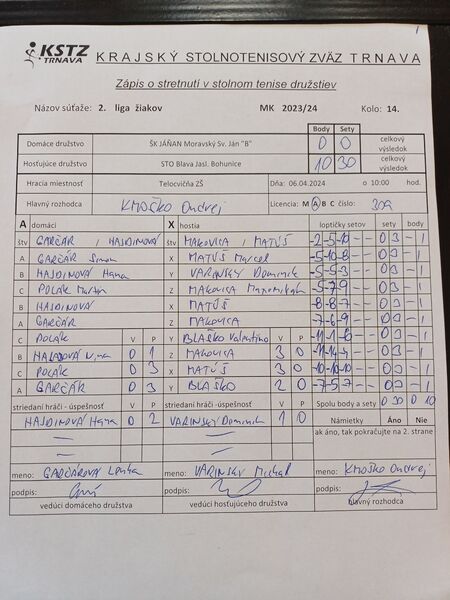 KSTZ TRNAVA KRAJSKÝ STOLNOTENISOVÝ ZVÄZ TRNAVA
Zápis o stretnutí v stolnom tenise družstiev
Názov súťaže: 2. liga žiakov MK 2023/24 Kolo: 14.
Body Sety
Domáce družstvo ŠK JÁŇAN Moravský Sv. Ján "B" 0 0 celkový výsledok
Hosťujúce družstvo STO Blava Jasl. Bohunice 10 30 celkový výsledok
Hracia miestnosť Telocvičňa ZŠ Dňa: 06.04.2024 o 10:00 hod.
Hlavný rozhodca KMOŠKO Ondrej Licencia: M A B C číslo: 309
A domáci X hostia loptičky setov sety body
štv GARČÁR / HAJDINOVÁ štv MAKOVICA / MATÚŠ -2 -5 -10 - - 0 3 - 1
A GARČÁR Simon X MATÚŠ Marcel -5 -10 -8 - - 0 3 - 1
B HAJDINOVÁ Hana Y VARINSKY Dominik -5 -5 -3 - - 0 3 - 1
C POLÁK Martin Z MAKOVICA -5 -7 -9 - - 0 3 - 1
B HAJDINOVÁ X MATÚŠ -8 -8 -7 - - 0 3 - 1
A GARČÁR Z MAKOVICA -7 -6 -9 - - 0 3 - 1
C POLÁK V P Y BLAŠKO Valentino V P -11 -1 -6 - - 0 3 - 1
B 0 1 Z MAKOVICA 3 0 - - 0 3 - 1
C POLÁK 0 3 X MATÚŠ 3 0 -10 -10 -10 - - 0 3 - 1
A GARČÁR 0 3 Y BLAŠKO 2 0 -7 -5 -7 - - 0 3 - 1
striedaní hráči - úspešnosť V P striedaní hráči - úspešnosť V P Spolu body a sety 0 30 0 10
HAJDINOVÁ Hana 0 2 VARINSKY Dominik 1 0 Námietky Áno Nie
ak áno, tak pokračujte na 2. strane
meno: GARČÁROVÁ Lenka meno: VARINSKY Michal meno: KMOŠKO Ondrej
podpis: podpis: podpis:
vedúci domáceho družstva vedúci hosťujúceho družstva hlavný rozhodca